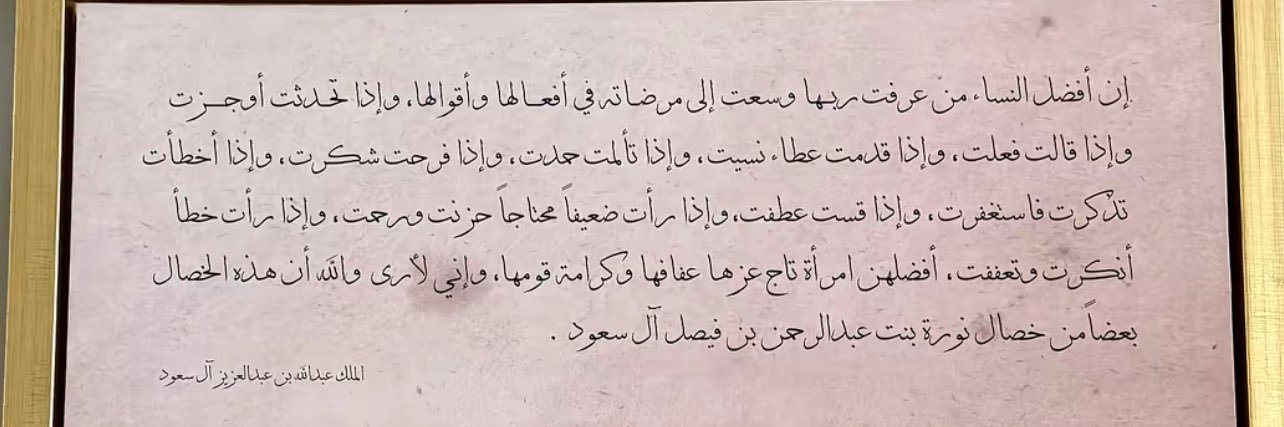 إن أفضل النساء من عرفت ربها وسعت إلى مرضاته في أفعالها وأقوالها، وإذا تحدثت أوجزت
وإذا قالت فعلت، وإذا قدمت عطاء نسيت، وإذا تألمت حمدت، وإذا فرحت شكرت، وإذا أخطأت
تذكرت فاستغفرت، وإذا قست عطفت، وإذا رأت ضعيفاً محتاجاً حزنت ورحمت، وإذا رأت خطأ
أنكرت وتعففت، أفضلهن امرأة تاج عزها عفافها وكرامة قومها، وإني لأرى والله أن هذه الخصال
بعضاً من خصال نورة بنت عبدالرحمن بن فيصل آل سعود .
الملك عبدالله بن عبدالعزيز آل سعود